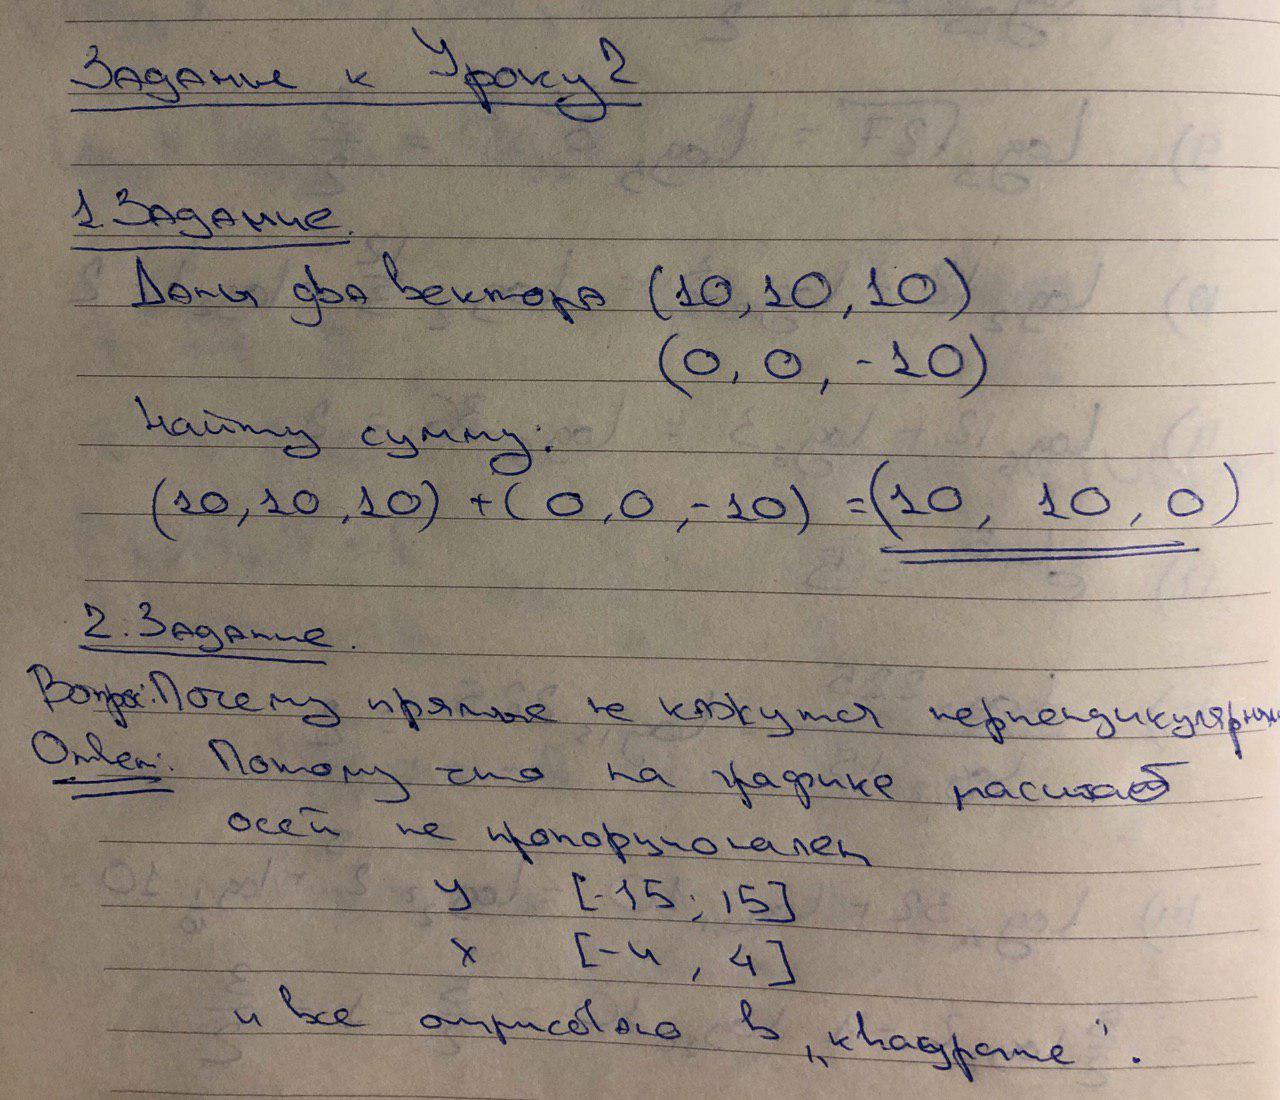 Задание к Уроку 2
1. Задание.
Даны два вектора (10, 10, 10)
(0, 0, -10)
Найти сумму:
(10, 10, 10) + (0, 0, -10) = (10, 10, 0)
2. Задание.
Вопрос: Почему прямые не кажутся перпендикулярными
Ответ: Потому что на графике масштаб
осей не пропорционален
y [-15; 15]
x [-4, 4]
и все отрисовано в „квадрате".